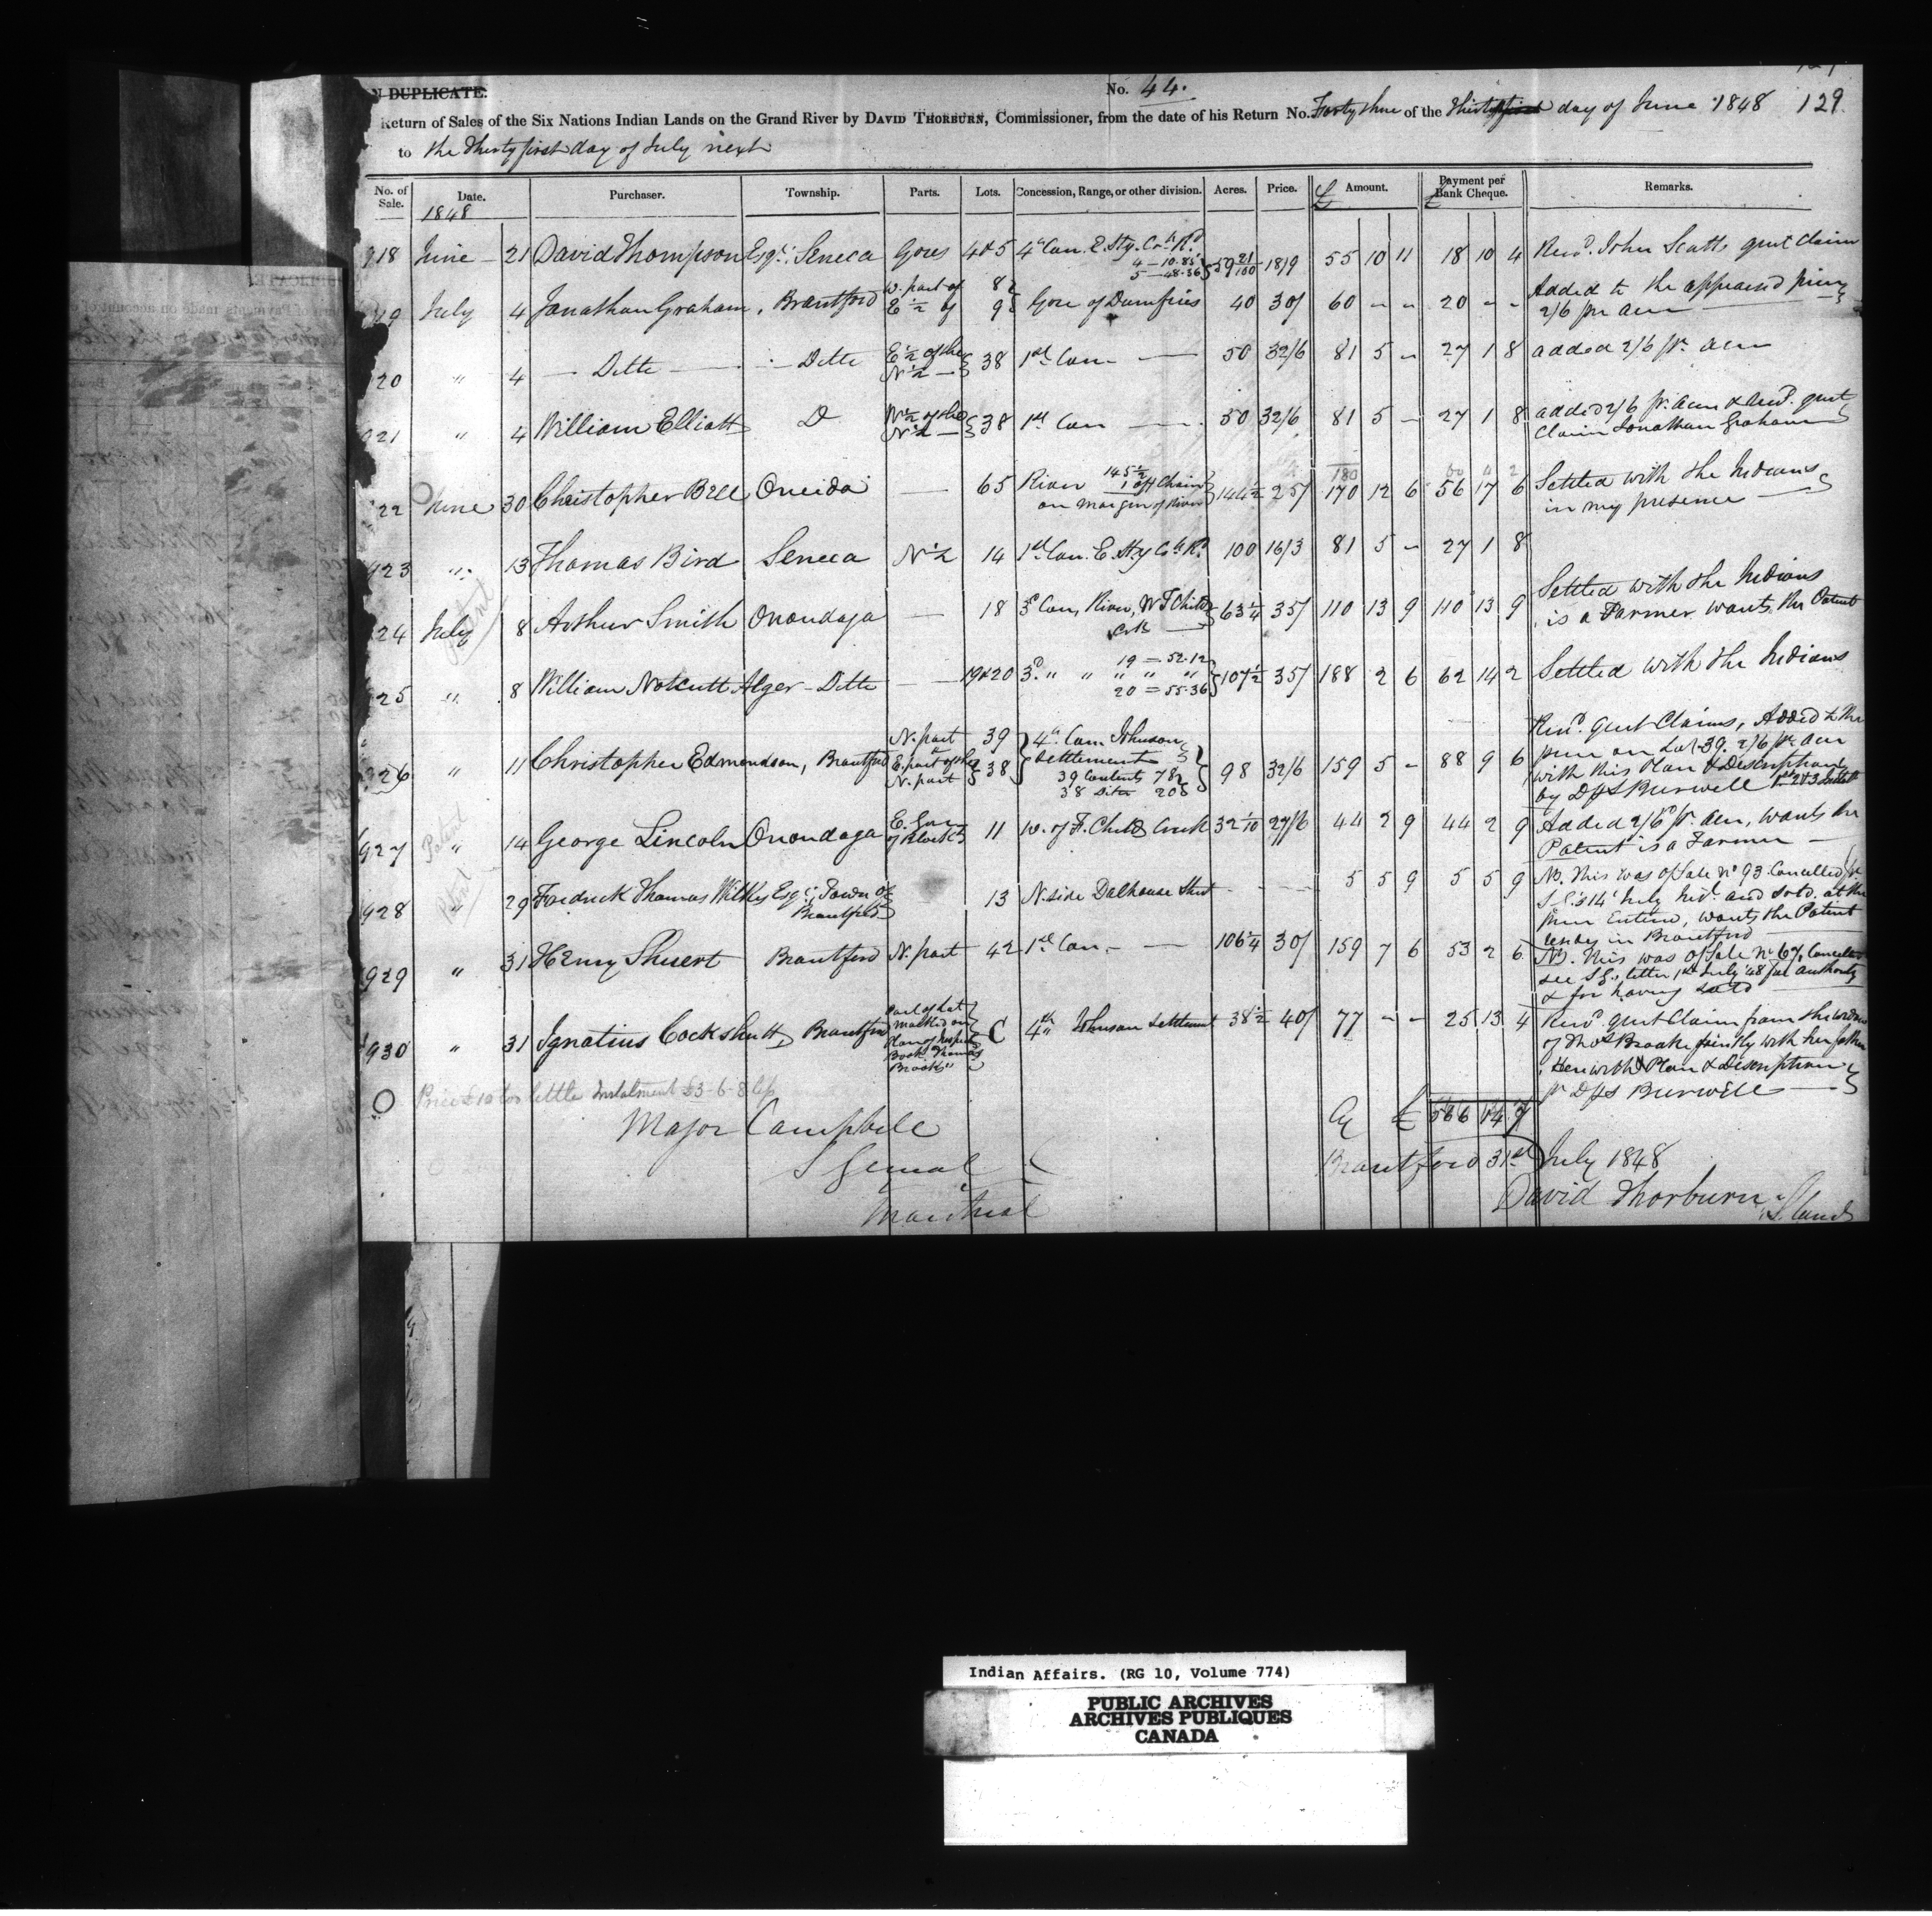 N DUPLICATE.
No. 44.
Return of Sales of the Six Nations Indian Lands on the Grand River by DAVID THORBURN, Commissioner, from the date of his Return No. Forty three of the day of June 1848 129.
to the Thirty first day of July next
No. of Sale. Date. Purchaser. Township. Parts. Lots. Concession, Range, or other division. Acres. Price. £ Amount. £ Payment per Bank Cheque. Remarks.
1848
918 June 21 David Thompson Esqr. Seneca Gores 4 & 5 4th Con. E. Sty. Ck. Rd. 4 - 10.85 5 - 48.36 } 59 21/100 18/9 55 10 11 18 10 4 Recd. John Scotts quit claim
19 July 4 Jonathan Graham, Brantford W. part of 8 E 1/2 of 9 Gore of Dumfries 40 30/ 60 - - 20 - - Added to the appraised price 2/6 per acre
20 " 4 Ditto Ditto E 1/2 of the N 1/2 38 1st Con 50 32/6 81 5 - 27 1 8 added 2/6 pr. acre
921 " 4 William Elliott Do N 1/2 38 1st Con 50 32/6 81 5 - 27 1 8 added 2/6 pr. acre & recd. quit claim Jonathan Graham
22 June 30 Christopher Bell Oneida — 65 River 145 1/2 1 off Chain on margin of River } 144 1/2 25/ 180 170 12 6 56 17 6 Settled with the Indians in my presence
923 " 13 Thomas Bird Seneca N 1/2 14 1st Con. E. Sty. Ck. Rd. 100 16/3 81 5 - 27 1 8
24 July 8 Arthur Smith Onondaga — 18 3d Con, River, W F Childs Crk 63 1/4 35/ 110 13 9 110 13 9 Settled with the Indians is a Farmer wants the Patent
Patent
25 " 8 William Notcutt Alger Ditto — 19 & 20 3d " " " " " 19 = 52.12 20 = 55.36 } 107 1/2 35/ 188 2 6 62 14 2 Settled with the Indians
926 " 11 Christopher Edmondson, Brantford N. part 39 E. part of the N. part 38 4th Con. Johnson Settlement 39 Contents 78 38 Ditto 20 } 98 32/6 159 5 - 88 9 6 Recd. quit Claims, Added to the price on Lot 39. 2/6 pr. acre with this Plan & Description by DPS Burwell
Patent
927 " 14 George Lincoln Onondaga E. Gore 11 W. of F. Childs Creek 32 1/10 27/6 44 2 9 44 2 9 Added 2/6 pr. acre, wants the Patent is a Farmer
Patent
928 " 29 Fredrick Thomas Wilkes Esqr. Town of Brantford 13 N. side Dalhouse Street - - 5 5 9 5 5 9 NB. This was of Sale No 93 Cancelled and sold at the price Entered, wants the Patent resides in Brantford
929 " 31 Henry Shuert Brantford N. part 42 1st Con. 106 1/4 30/ 159 7 6 53 2 6 NB. This was of Sale No 67, Cancelled see letter 1st July '48 for authority & for having sold
930 " 31 Ignatius Cockshutt, Brantford Part of Lot marked on Plan of Inspect. Book "Thomas Brooks" C 4th " Johnson Settlement 38 1/2 40/ 77 - - 25 13 4 Recd. quit Claim from the widow of Thos Brooke jointly with her father Herewith Plan & Description pr DPS Burwell
O Price £10 too little Instalment £3-6-8
Cy £ 566 14 7
Major Campbell
S General
Montreal
Brantford 31st July 1848
David Thorburn
Indian Affairs. (RG 10, Volume 774)
PUBLIC ARCHIVES
ARCHIVES PUBLIQUES
CANADA